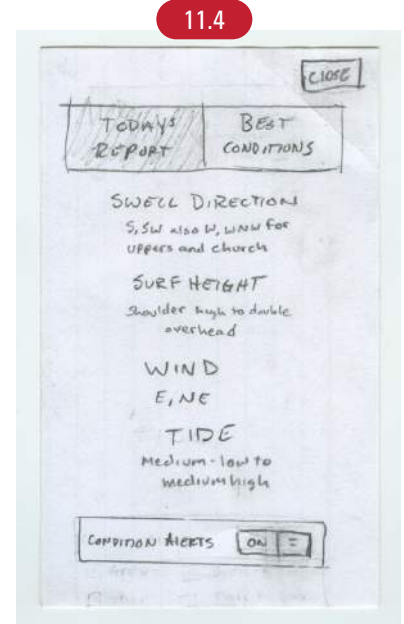 11.4
CLOSE
TODAYS
REPORT
BEST
CONDITIONS
SWELL DIRECTION
S, SW also W, WNW for
uppers and church
SURF HEIGHT
Shoulder high to double
overhead
WIND
E, NE
TIDE
Medium-low to
medium high
CONDITION ALERTS ON =